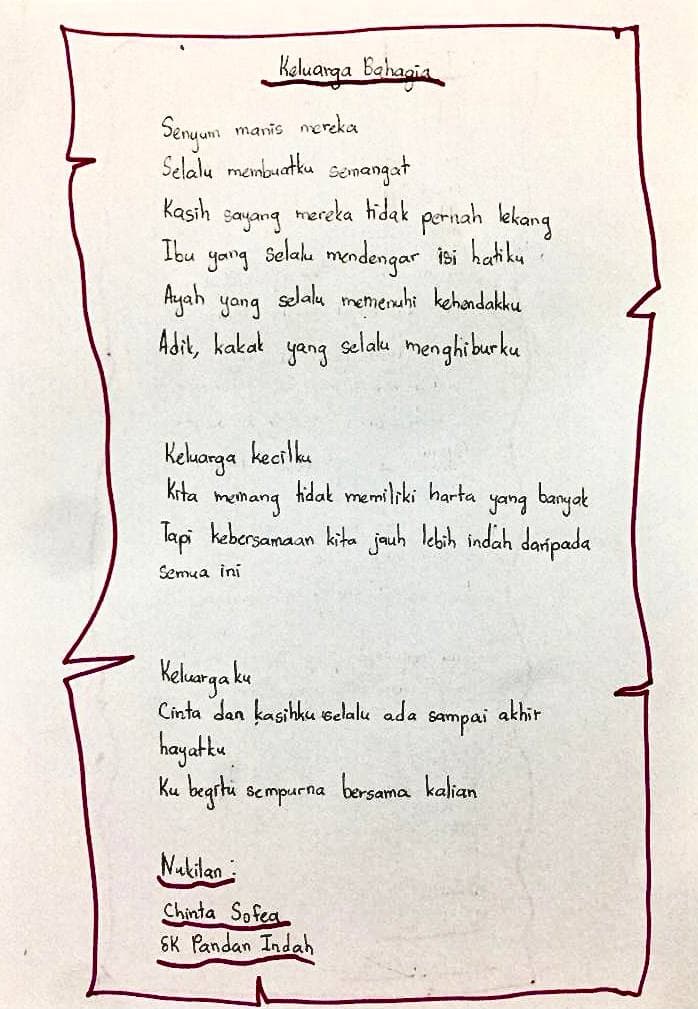 Keluarga Bahagia
Senyum manis mereka
Selalu membuatku semangat
Kasih sayang mereka tidak pernah lekang
Ibu yang selalu mendengar isi hatiku
Ayah yang selalu memenuhi kehendakku
Adik, kakak yang selalu menghiburku
Keluarga kecilku
Kita memang tidak memiliki harta yang banyak
Tapi kebersamaan kita jauh lebih indah daripada
semua ini
Keluargaku
Cinta dan kasihku selalu ada sampai akhir
hayatku
Ku begitu sempurna bersama kalian
Nukilan :
Chinta Sofea
SK Pandan Indah